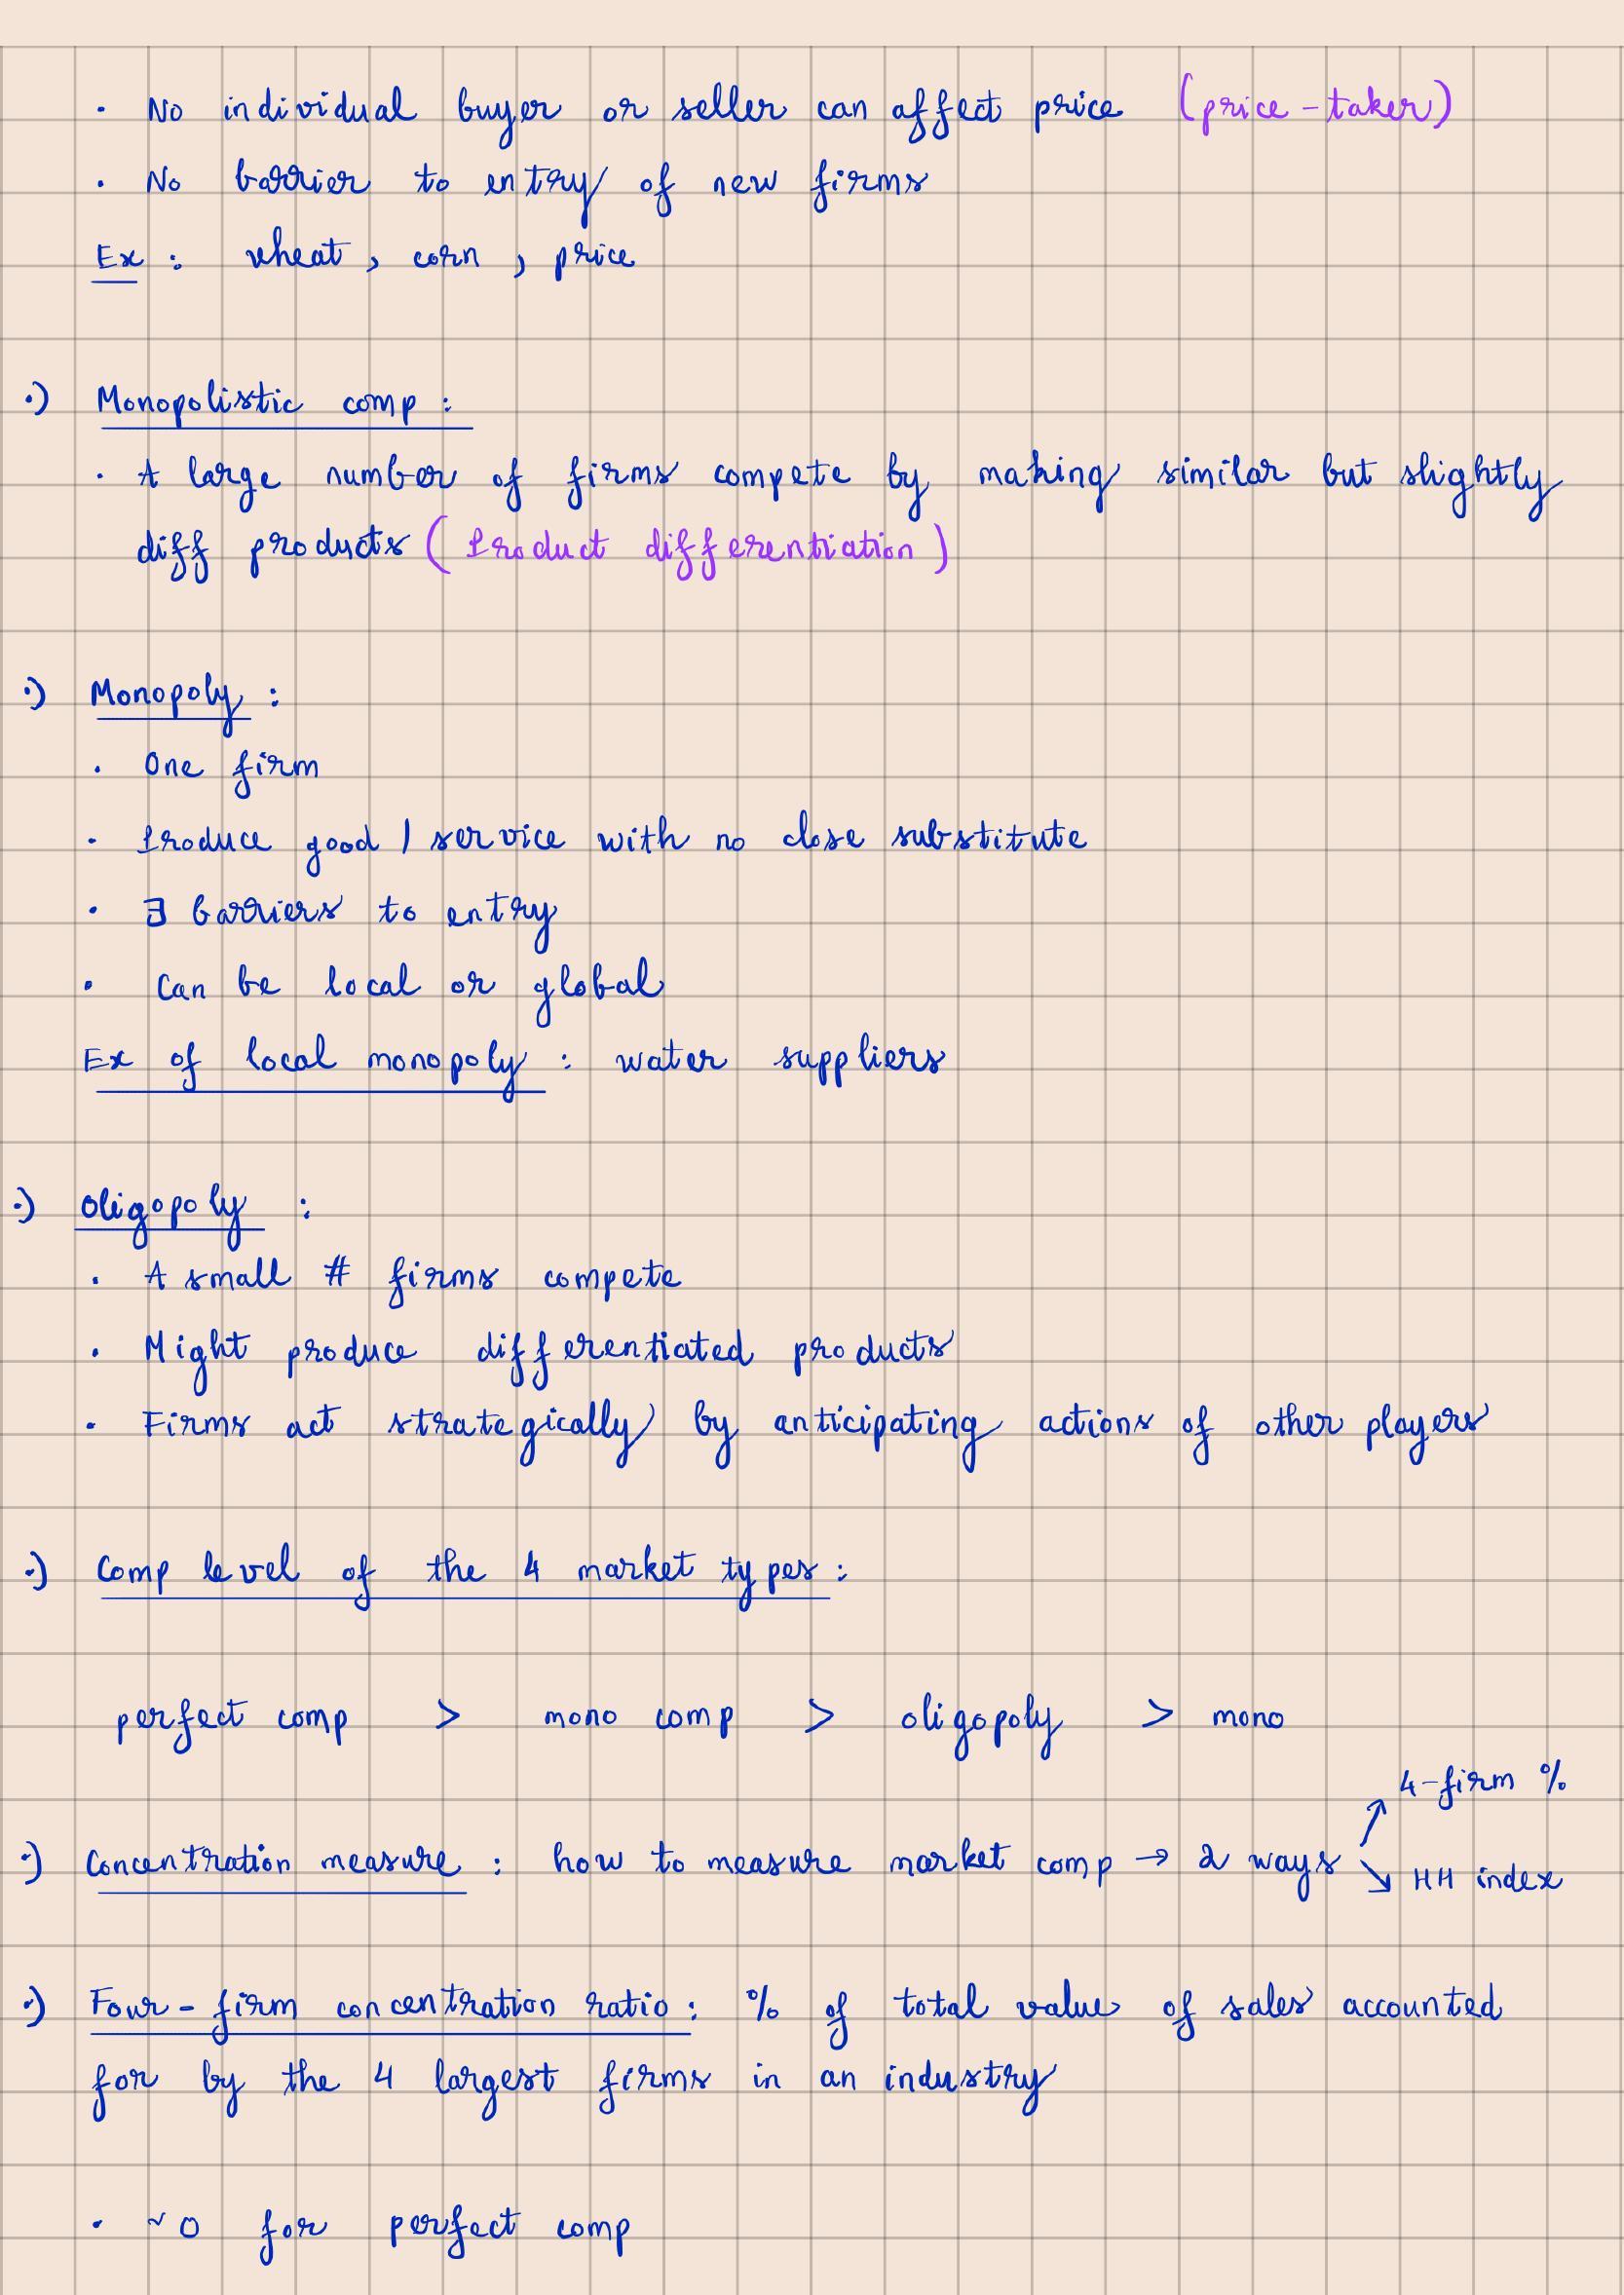 · No individual buyer or seller can affect price (price-taker)
· No barrier to entry of new firms
Ex : wheat, corn, price
·) Monopolistic comp :
· A large number of firms compete by making similar but slightly
diff products (Product differentiation)
·) Monopoly :
· One firm
· Produce good / service with no close substitute
· ∃ barriers to entry
· Can be local or global
Ex of local monopoly : water suppliers
·) Oligopoly :
· A small # firms compete
· Might produce differentiated products
· Firms act strategically by anticipating actions of other players
·) Comp level of the 4 market types :
perfect comp > mono comp > oligopoly > mono
4-firm %
·) Concentration measure : how to measure market comp → 2 ways ↗ ↘ HH index
·) Four-firm concentration ratio : % of total value of sales accounted
for by the 4 largest firms in an industry
· ~0 for perfect comp